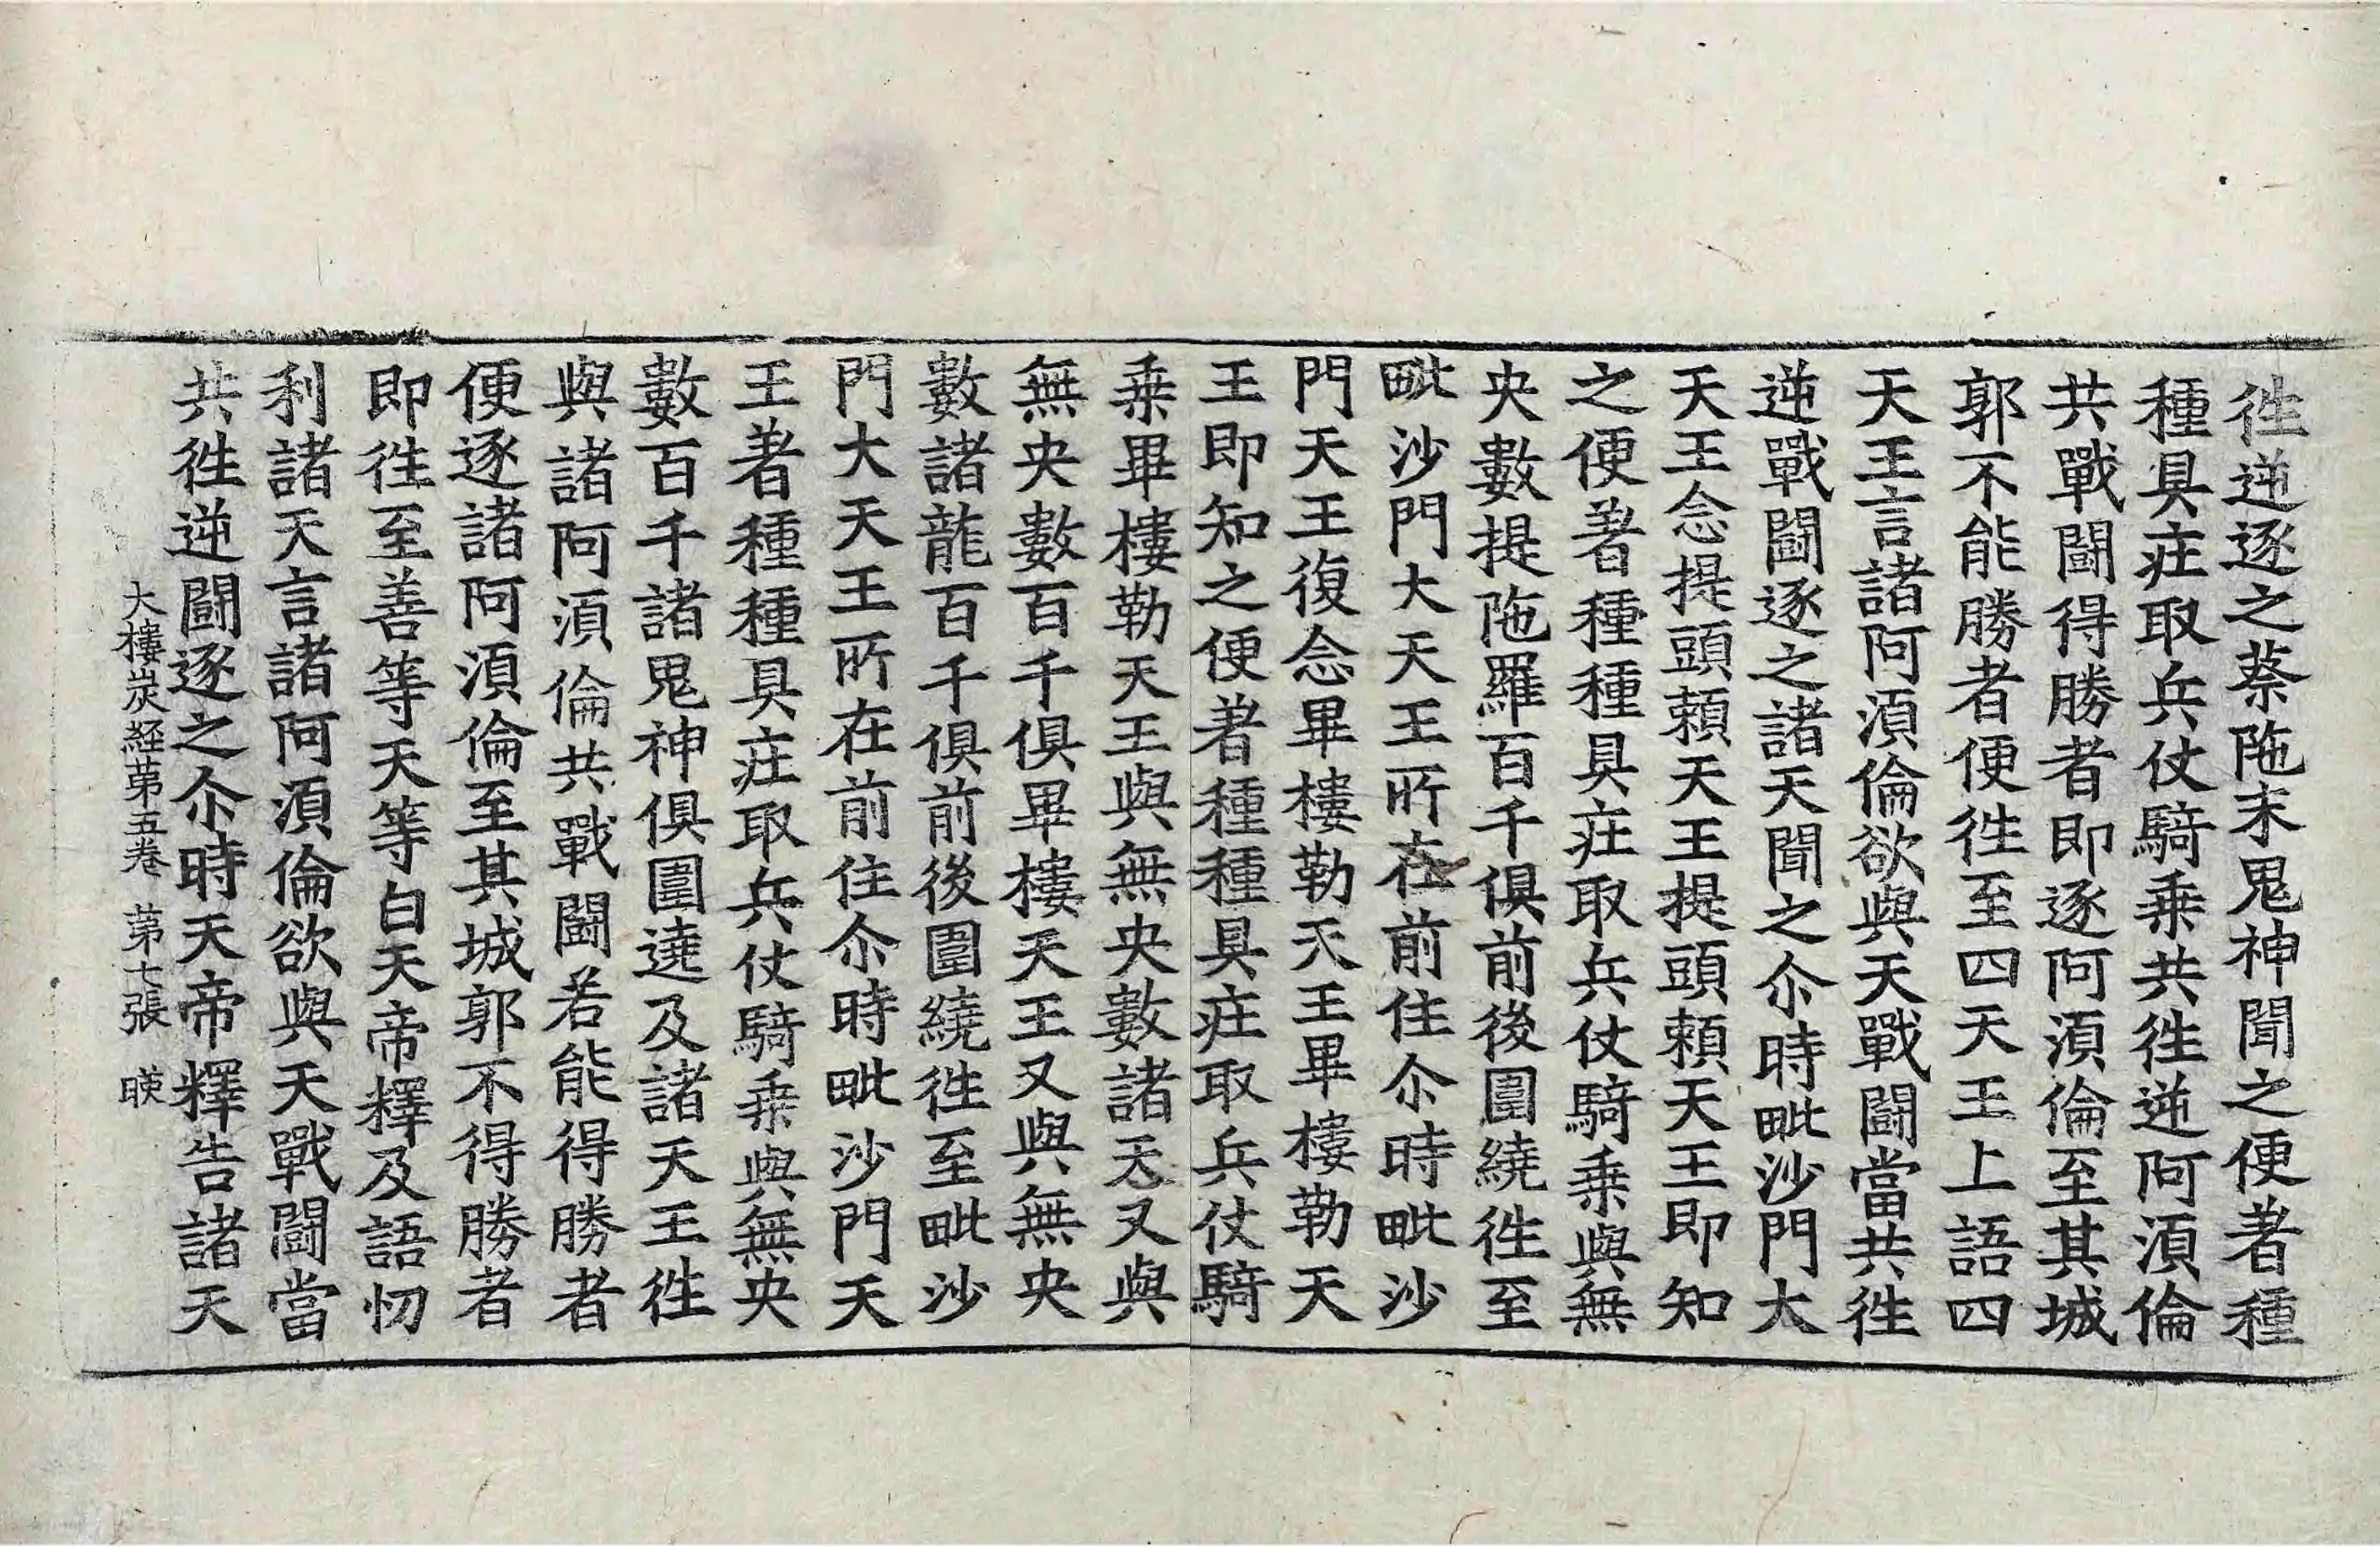 徃逆逐之蔡陁末鬼神聞之便著種
種具莊取兵仗騎乗共徃逆阿須倫
共戰鬪得勝者即逐阿須倫至其城
郭不能勝者便徃至四天王上語四
天王言諸阿須倫欲與天戰鬪當共徃
逆戰鬪逐之諸天聞之尒時毗沙門大
天王念提頭頼天王提頭頼天王即知
之便著種種具莊取兵仗騎乗與無
央數提陁羅百千俱前後圍繞徃至
毗沙門大天王所在前住尒時毗沙
門天王復念毕樓勒天王毕樓勒天
王即知之便著種種具莊取兵仗騎
乗毕樓勒天王與無央數諸天又與
無央數百千俱毕樓天王又與無央
數諸龍百千俱前後圍繞徃至毗沙
門大天王所在前住尒時毗沙門天
王著種種具莊取兵仗騎乗與無央
數百千諸鬼神俱圍遶及諸天王徃
與諸阿須倫共戰鬪若能得勝者
便逐諸阿須倫至其城郭不得勝者
即徃至善等天等白天帝釋及語忉
利諸天言諸阿須倫欲與天戰鬪當
共徃逆鬪逐之尒時天帝釋告諸天
大樓炭経苐五巻 苐七張 暎